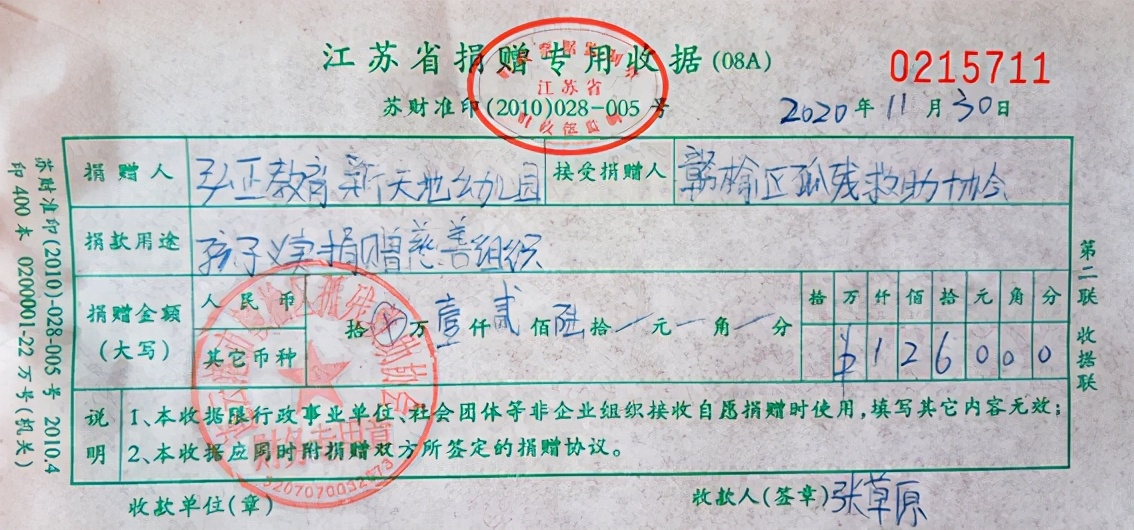 江苏省捐赠专用收据(08A)
0215711
苏财准印(2010)028-005号
2020年11月30日
江苏省
捐赠人 弘正教育新天地幼儿园 接受捐赠人 赣榆区孤残救助协会
捐款用途 孩子义卖捐赠慈善组织
捐赠金额(大写) 人民币 拾 万壹仟贰佰陆拾一元一角一分 拾万仟佰拾元角分
其它币种 ¥126000
说明 1、本收据限行政事业单位、社会团体等非企业组织接收自愿捐赠时使用,填写其它内容无效;
2、本收据应同时附捐赠双方所签定的捐赠协议。
收款单位(章) 收款人(签章)张草原
财务专用章
3207070032873
苏财准印(2010)-028-005号 2010.4
印400本 0200001-22万号(机关)
第二联 收据联